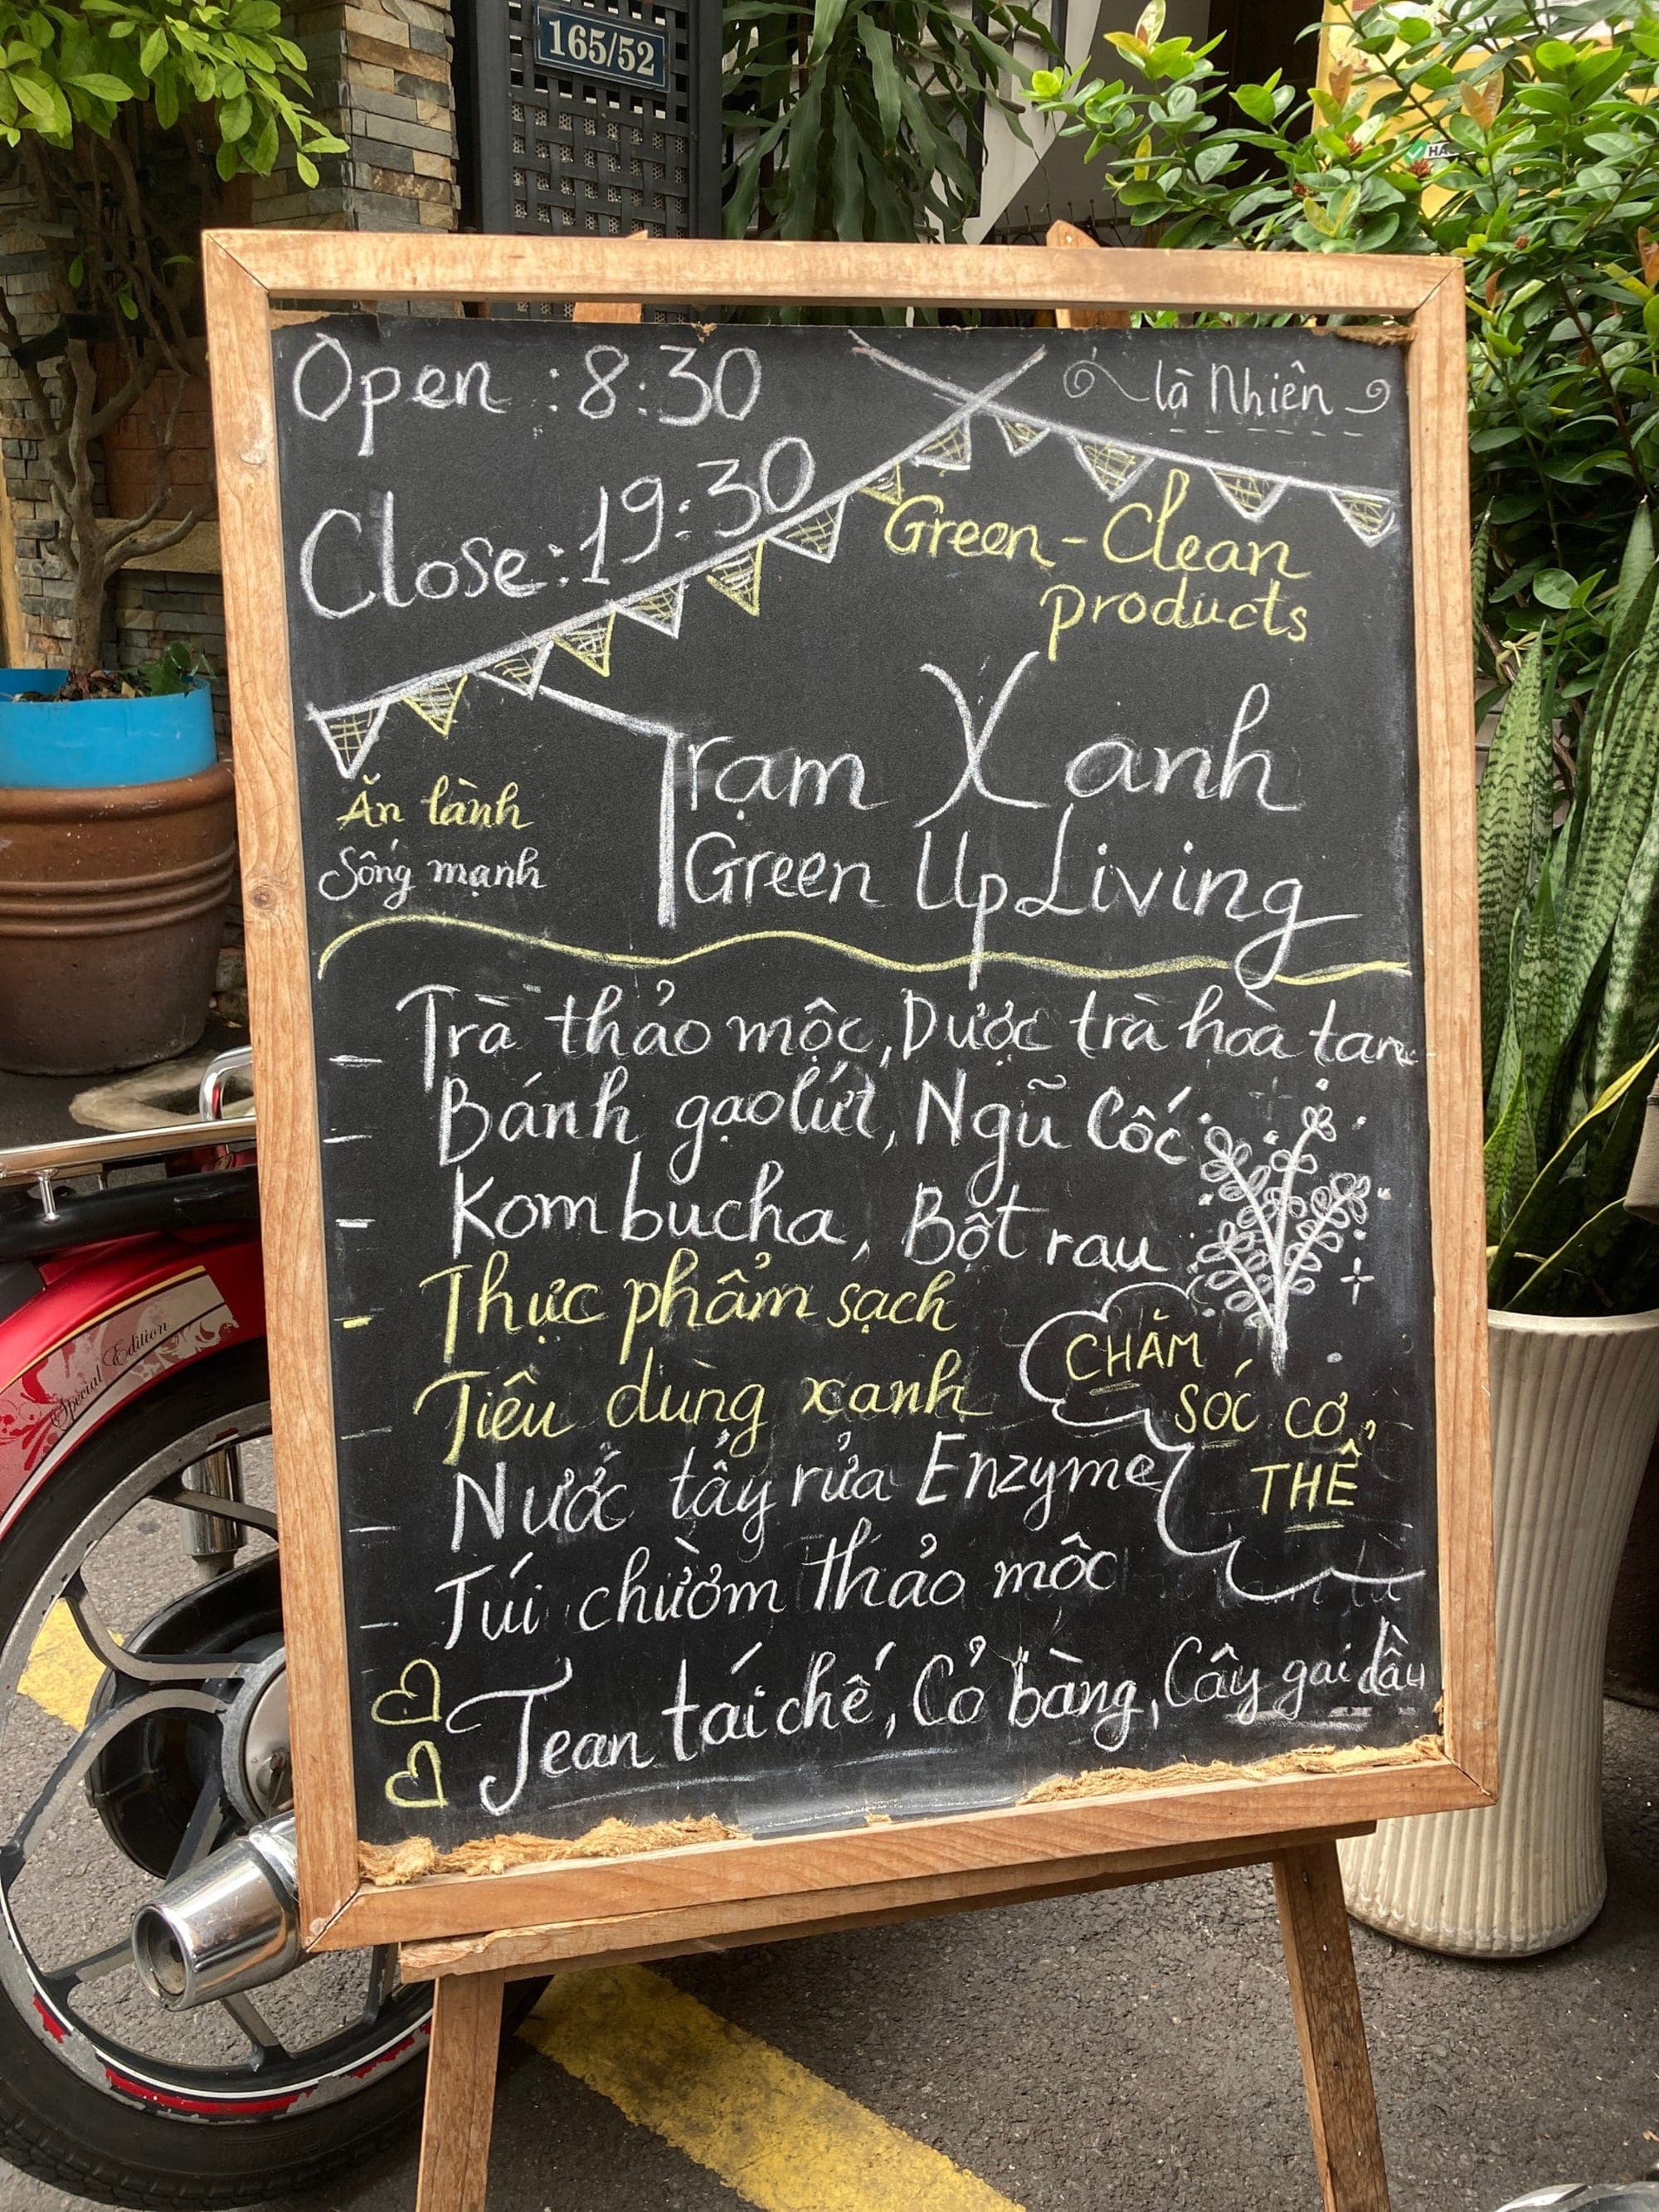 165/52
Open : 8:30
là Nhiên
Close : 19:30
Green - Clean
products
Trạm Xanh
Green Up Living
Ăn lành
Sống mạnh
- Trà thảo mộc, Dược trà hòa tan
- Bánh gạo lứt, Ngũ Cốc
- Kombucha, Bột rau
- Thực phẩm sạch
- Tiêu dùng xanh
CHĂM
SÓC CƠ
THỂ
- Nước tẩy rửa Enzyme
- Túi chườm thảo mộc
Jean tái chế, Cỏ bàng, Cây gai dầu
Special Edition